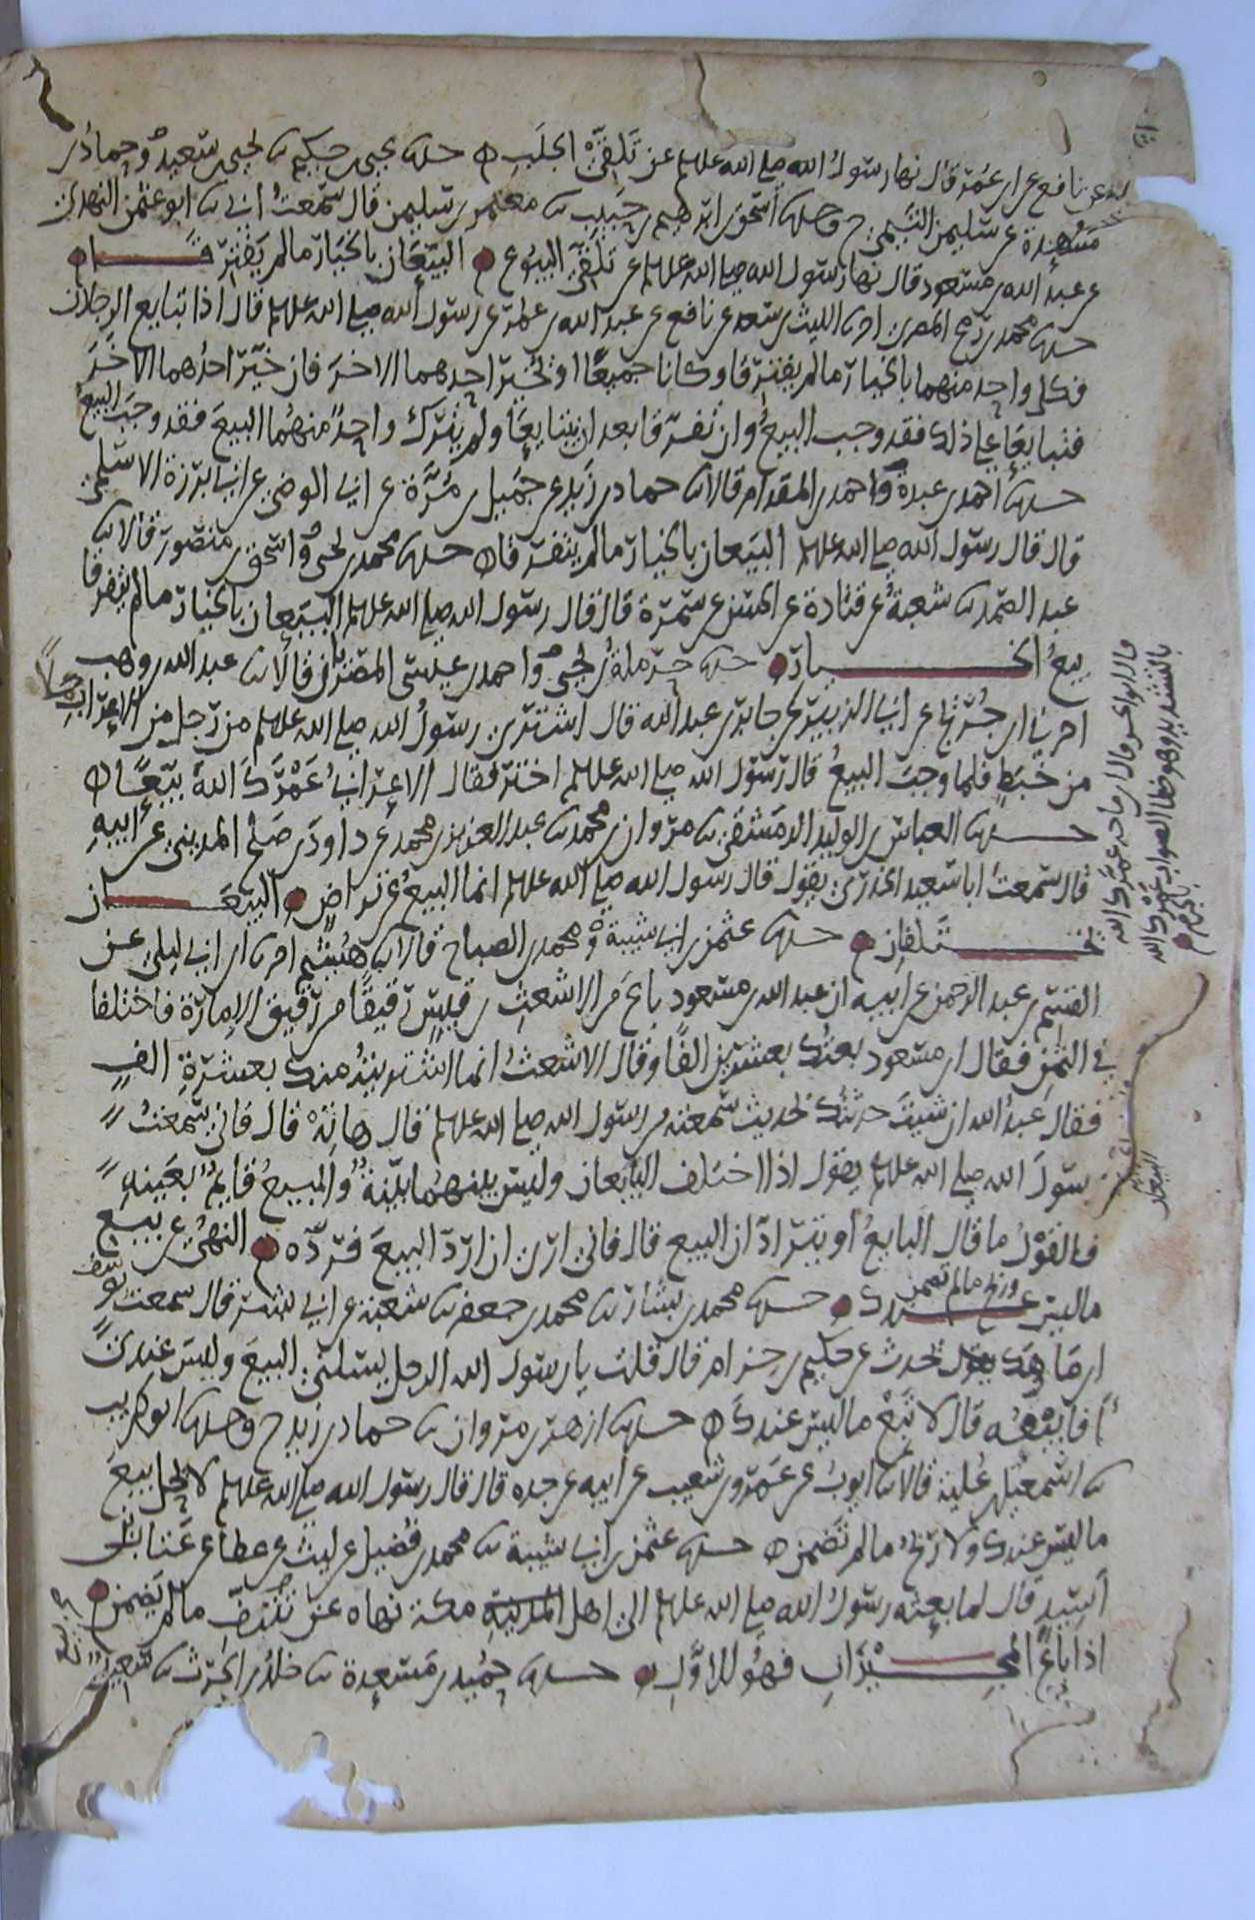 عن نافع عن ابن عمر قال نها رسول الله صلى الله عليه وسلم عن تلقي الجلب ه حدثنا يحيى بن حكيم ثنا يحيى بن سعيد وحماد بن
مسعدة عن سليمن التيمي ح وحدثنا اسحق بن ابرهيم بن حبيب ثنا معتمر بن سليمن قال سمعت ابي ثنا ابو عثمن النهدي
عن عبد الله بن مسعود قال نها رسول الله صلى الله عليه وسلم عن تلقي البيوع البيعان بالخيار ما لم يفترقا
حدثنا محمد بن رمح المصري انا الليث بن سعد عن نافع عن عبد الله بن عمر عن رسول الله صلى الله عليه وسلم قال اذا تبايع الرجلان
فكل واحد منهما بالخيار ما لم يفترقا وكانا جميعًا او يخير احدهما الاخر فان خير احدهما الاخر
فتبايعا على ذلك فقد وجب البيع وان تفرقا بعد ان يتبايعا ولم يترك واحد منهما البيع فقد وجب البيع
حدثنا احمد بن عبدة واحمد بن المقدام قالا ثنا حماد بن زيد عن جميل بن مرة عن ابي الوضي عن ابي برزة الاسلمي
قال قال رسول الله صلى الله عليه وسلم البيعان بالخيار ما لم يتفرقا ه حدثنا محمد بن يحيى واسحق بن منصور قالا ثنا
عبد الصمد ثنا شعبة عن قتادة عن الحسن عن سمرة قال قال رسول الله صلى الله عليه وسلم البيعان بالخيار ما لم يتفرقا
بيع الخيار حدثنا حرملة بن يحيى واحمد بن عيسى المصريان قالا ثنا عبد الله بن وهب
اخبرني ابن جريج عن ابي الزبير عن جابر بن عبد الله قال اشترى رسول الله صلى الله عليه وسلم من رجل من الاعراب حملا
من خبط فلما وجب البيع قال رسول الله صلى الله عليه وسلم اختر فقال الاعرابي عمرك الله بيعًا ه
حدثنا العباس بن الوليد الدمشقي ثنا مروان بن محمد ثنا عبد العزيز بن محمد عن داود بن صلح المديني عن ابيه
قال سمعت ابا سعيد الخدري يقول قال رسول الله صلى الله عليه وسلم انما البيع عن تراض البيعان
يختلفان حدثنا عثمن بن ابي شيبة ومحمد بن الصباح قالا ثنا هشيم انا ابن ابي ليلى عن
القسم بن عبد الرحمن عن ابيه ان عبد الله بن مسعود باع من الاشعث بن قيس رقيقا من رقيق الامارة فاختلفا
في الثمن فقال ابن مسعود بعتك بعشرين الفًا وقال الاشعث انما اشتريت منك بعشرة الف
فقال عبد الله ان شيت حدثتك بحديث سمعته من رسول الله صلى الله عليه وسلم قال هاته قال فاني سمعت
رسول الله صلى الله عليه وسلم يقول اذا اختلف البايعان وليس بينهما بينة والمبيع قايم بعينه
فالقول ما قال البايع او يترادان البيع قال فاني ارى ان ارد البيع فرده النهي عن بيع
ما ليس عندك وربح ما لم تضمن حدثنا محمد بن بشار ثنا محمد بن جعفر ثنا شعبة عن ابي بشر قال سمعت يوسف
بن ماهك يحدث عن حكيم بن حزام قال قلت يا رسول الله الرجل يسلني البيع وليس عندي
افابيعه قال لا تبع ما ليس عندك ه حدثنا ازهر بن مروان ثنا حماد بن زيد ح وحدثنا ابو كريب
ثنا اسمعيل بن علية قالا ثنا ايوب عن عمرو بن شعيب عن ابيه عن جده قال قال رسول الله صلى الله عليه وسلم لا يحل بيع
ما ليس عندك ولا ربح ما لم تضمن ه حدثنا عثمن بن ابي شيبة ثنا محمد بن فضيل عن ليث عن عطاء عن عتاب بن
اسيد قال لما بعثه رسول الله صلى الله عليه وسلم الى اهل المدينة مكة نهاه عن شف ما لم يضمن
اذا باع المجيزان فهو للاول حدثنا حميد بن مسعدة ثنا خلد بن الحرث ثنا سعيد
بالتشديد وهو خطا الصواب عمرك الله